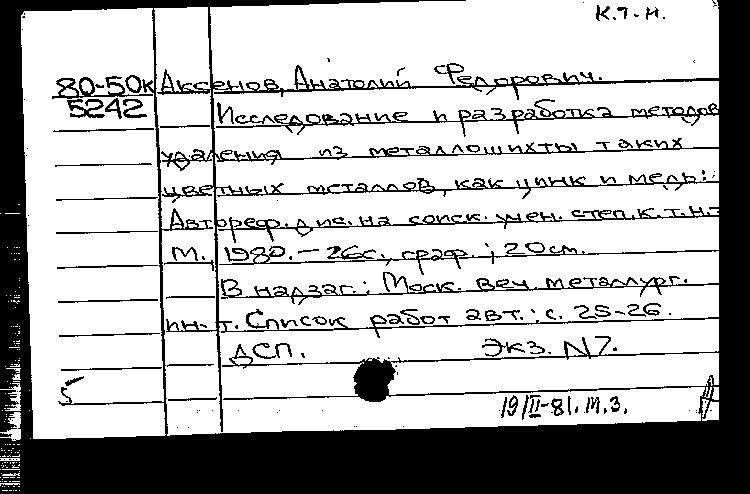 К.Т.Н.
80-50к Аксенов, Анатолий Федорович.
5242 Исследование и разработка методов
удаления из металлошихты таких
цветных металлов, как цинк и медь:
Автореф. дис. на соиск. учен. степ. к.т.н.-
М., 1980.-26с., граф.; 20см.
В надзаг.: Моск. веч. металлург.
ин-т. Список работ авт.: с. 25-26.
ДСП. Экз. N7.
5
19/II-81. М.З.